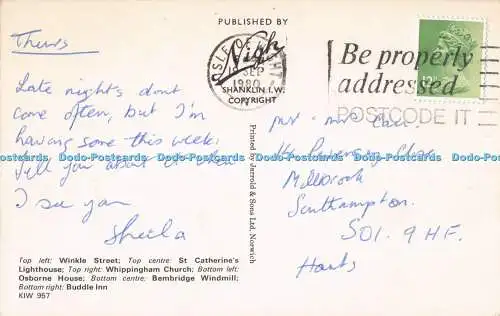 Thurs
Late night's dont
come often, but I'm
having some this week,
tell you about it when
I see you
Sheila
Top left: Winkle Street; Top centre: St Catherine's
Lighthouse; Top right: Whippingham Church; Bottom left:
Osborne House; Bottom centre: Bembridge Windmill;
Bottom right: Buddle Inn
KIW 957
PUBLISHED BY
Nigh
SHANKLIN I.W.
COPYRIGHT
ISLE OF WIGHT
SEP
1980
Be properly
addressed
POSTCODE IT
Printed by Jarrold & Sons Ltd. Norwich
Close
Millbrook
Southampton
SO1. 9HF.
Hants
Dodo-Postcards Dodo-Postcards Dodo-Postcards Dodo-Postcards Dodo-Postcards Dodo-Postcards Dodo-Postcards